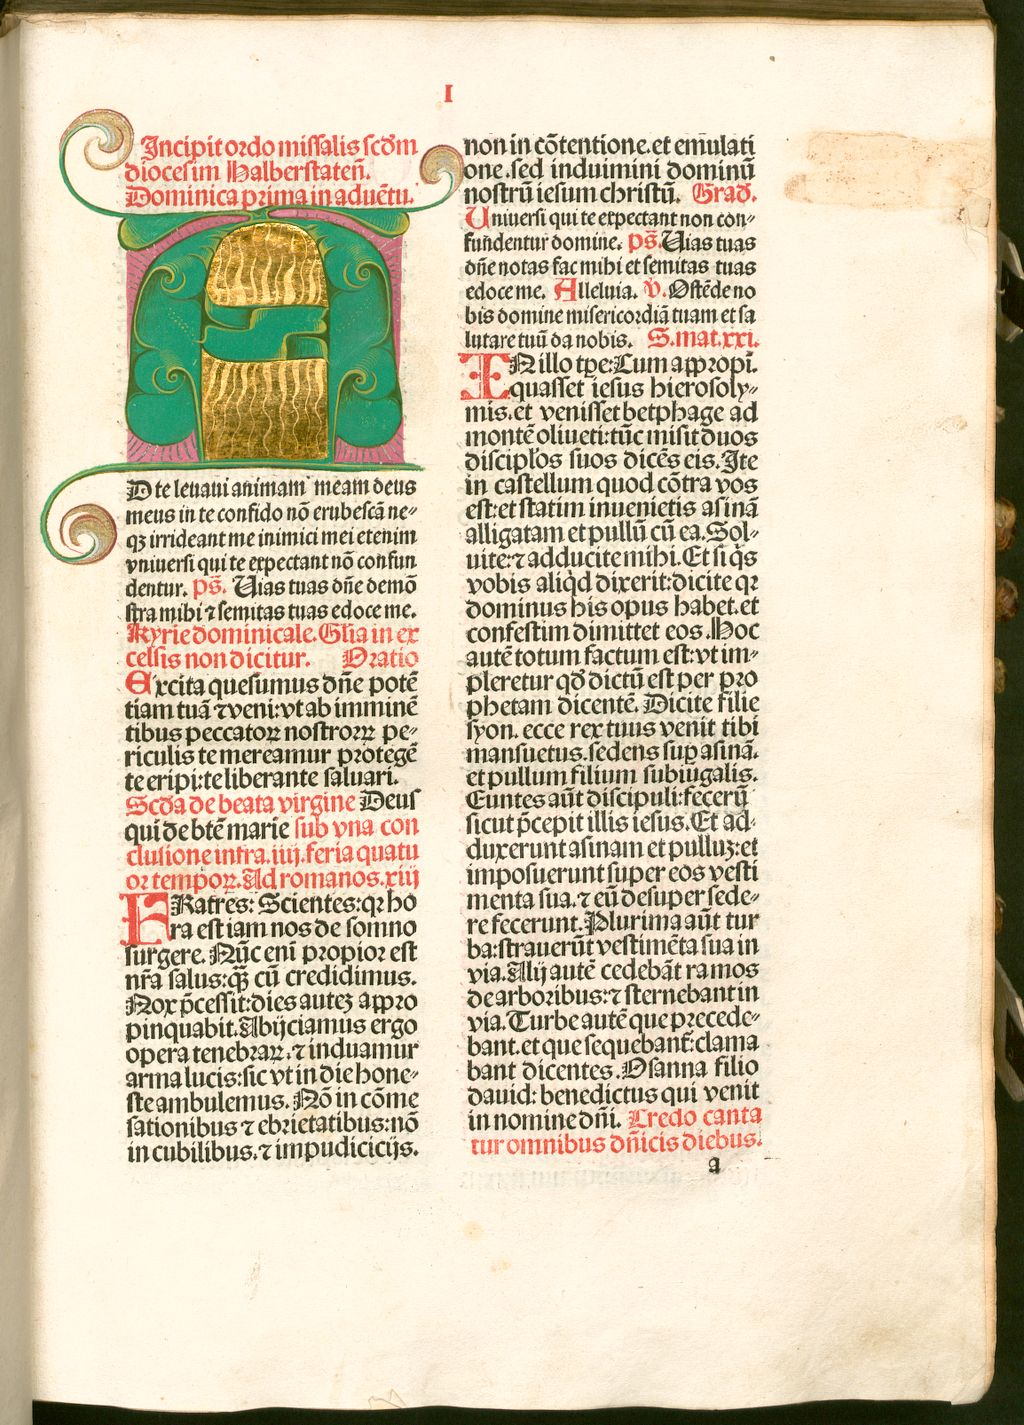 I
Incipit ordo missalis scd̄m
diocesim Halberstateñ.
Dominica prima in aduētu.
A
D te leuaui animam meam deus
meus in te confido nō erubescā ne⸗
qꝫ irrideant me inimici mei etenim
vniuersi qui te expectant nō confun
dentur. ps̄. Uias tuas dn̄e demō
stra mihi ⁊ semitas tuas edoce me.
Kyrie dominicale. Gl̄ia in ex
celsis non dicitur. Oratio
Excita quesumus dn̄e potē
tiam tuā ⁊ veni: vt ab imminē
tibus peccatoꝝ nostroꝝ pe⸗
riculis te mereamur protegēte
te eripi: te liberante saluari.
Scd̄a de beata virgine Deus
qui de btē marie sub vna con
clusione infra. iiij. feria quatu
or tempoꝝ. Ad romanos. xiij
FRatres: Scientes: qꝛ ho
ra est iam nos de somno
surgere. Nūc eni̅ propior est
nr̄a salus: qꝫ̄ cū credidimus.
Nox p̄cessit: dies auteꝫ appro
pinquabit. Abijciamus ergo
opera tenebraꝝ. ⁊ induamur
arma lucis: sic vt in die hone⸗
ste ambulemus. Nō in cōme
sationibus ⁊ ebrietatibus: nō
in cubilibus. ⁊ impudicicijs.
non in cōtentione. et emulati
one. sed induimini dominū
nostrū iesum christū. Grad̄.
Uniuersi qui te expectant non con⸗
fundentur domine. ps̄. Uias tuas
dn̄e notas fac mihi et semitas tuas
edoce me. Alleluia. v̄. Ostēde no
bis domine misericordiā tuam et sa
lutare tuū da nobis. S. mat. xxi.
IN illo tp̄e: Cum appropi̅.
quasset iesus hierosoly⸗
mis. et venisset betphage ad
montē oliueti: tūc misit duos
discipl̄os suos dicēs eis. Ite
in castellum quod cōtra vos
est: et statim inuenietis asinā
alligatam et pullū cū ea. Sol⸗
uite: ⁊ adducite mihi. Et si q̄s
vobis aliq̇d dixerit: dicite qꝛ
dominus his opus habet. et
confestim dimittet eos. Hoc
autē totum factum est: vt im⸗
pleretur qd̄ dictū est per pro
phetam dicentē. Dicite filie
syon. ecce rex tuus venit tibi
mansuetus. sedens suꝑ asinā.
et pullum filium subiugalis.
Euntes aūt discipuli: fecerū
sicut p̄cepit illis iesus. Et ad⸗
duxerunt asinam et pulluꝫ: et
imposuerunt super eos vesti
menta sua. ⁊ eū desuper sede⸗
re fecerunt. Plurima aūt tur
ba: strauerūt vestimēta sua in
via. Alij autē cedebāt ramos
de arboribus: ⁊ sternebant in
via. Turbe autē que precede⸗
bant. et que sequebant̄: clama
bant dicentes. Osanna filio
dauid: benedictus qui venit
in nomine dn̄i. Credo canta
tur omnibus dn̄icis diebus.
a